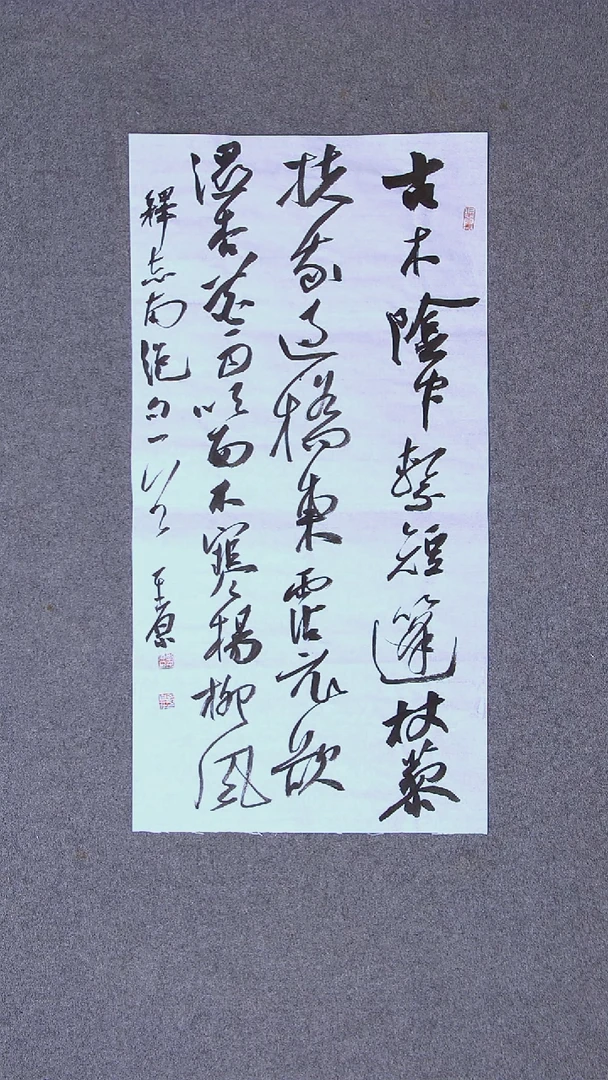 古木陰中繫短篷杖藜
扶我過橋東霑衣欲
濕杏花雨吹面不寒楊柳風
釋志南絕句一首